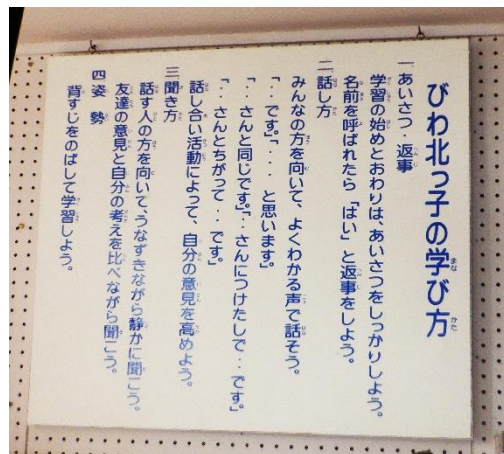 びわ北っ子の学び方
一 あいさつ・返事
学習の始めとおわりは、あいさつをしっかりしよう。
名前を呼ばれたら「はい」と返事をしよう。
二 話し方
みんなの方を向いて、よくわかる声で話そう。
「・・です。」「・・・と思います。」
「・・さんと同じです。」「・・さんにつけたしで・・です。」
「・・さんとちがって・・です。」
話し合い活動によって、自分の意見を高めよう。
三 聞き方
話す人の方を向いて、うなずきながら静かに聞こう。
友達の意見と自分の考えを比べながら聞こう。
四 姿 勢
背すじをのばして学習しよう。